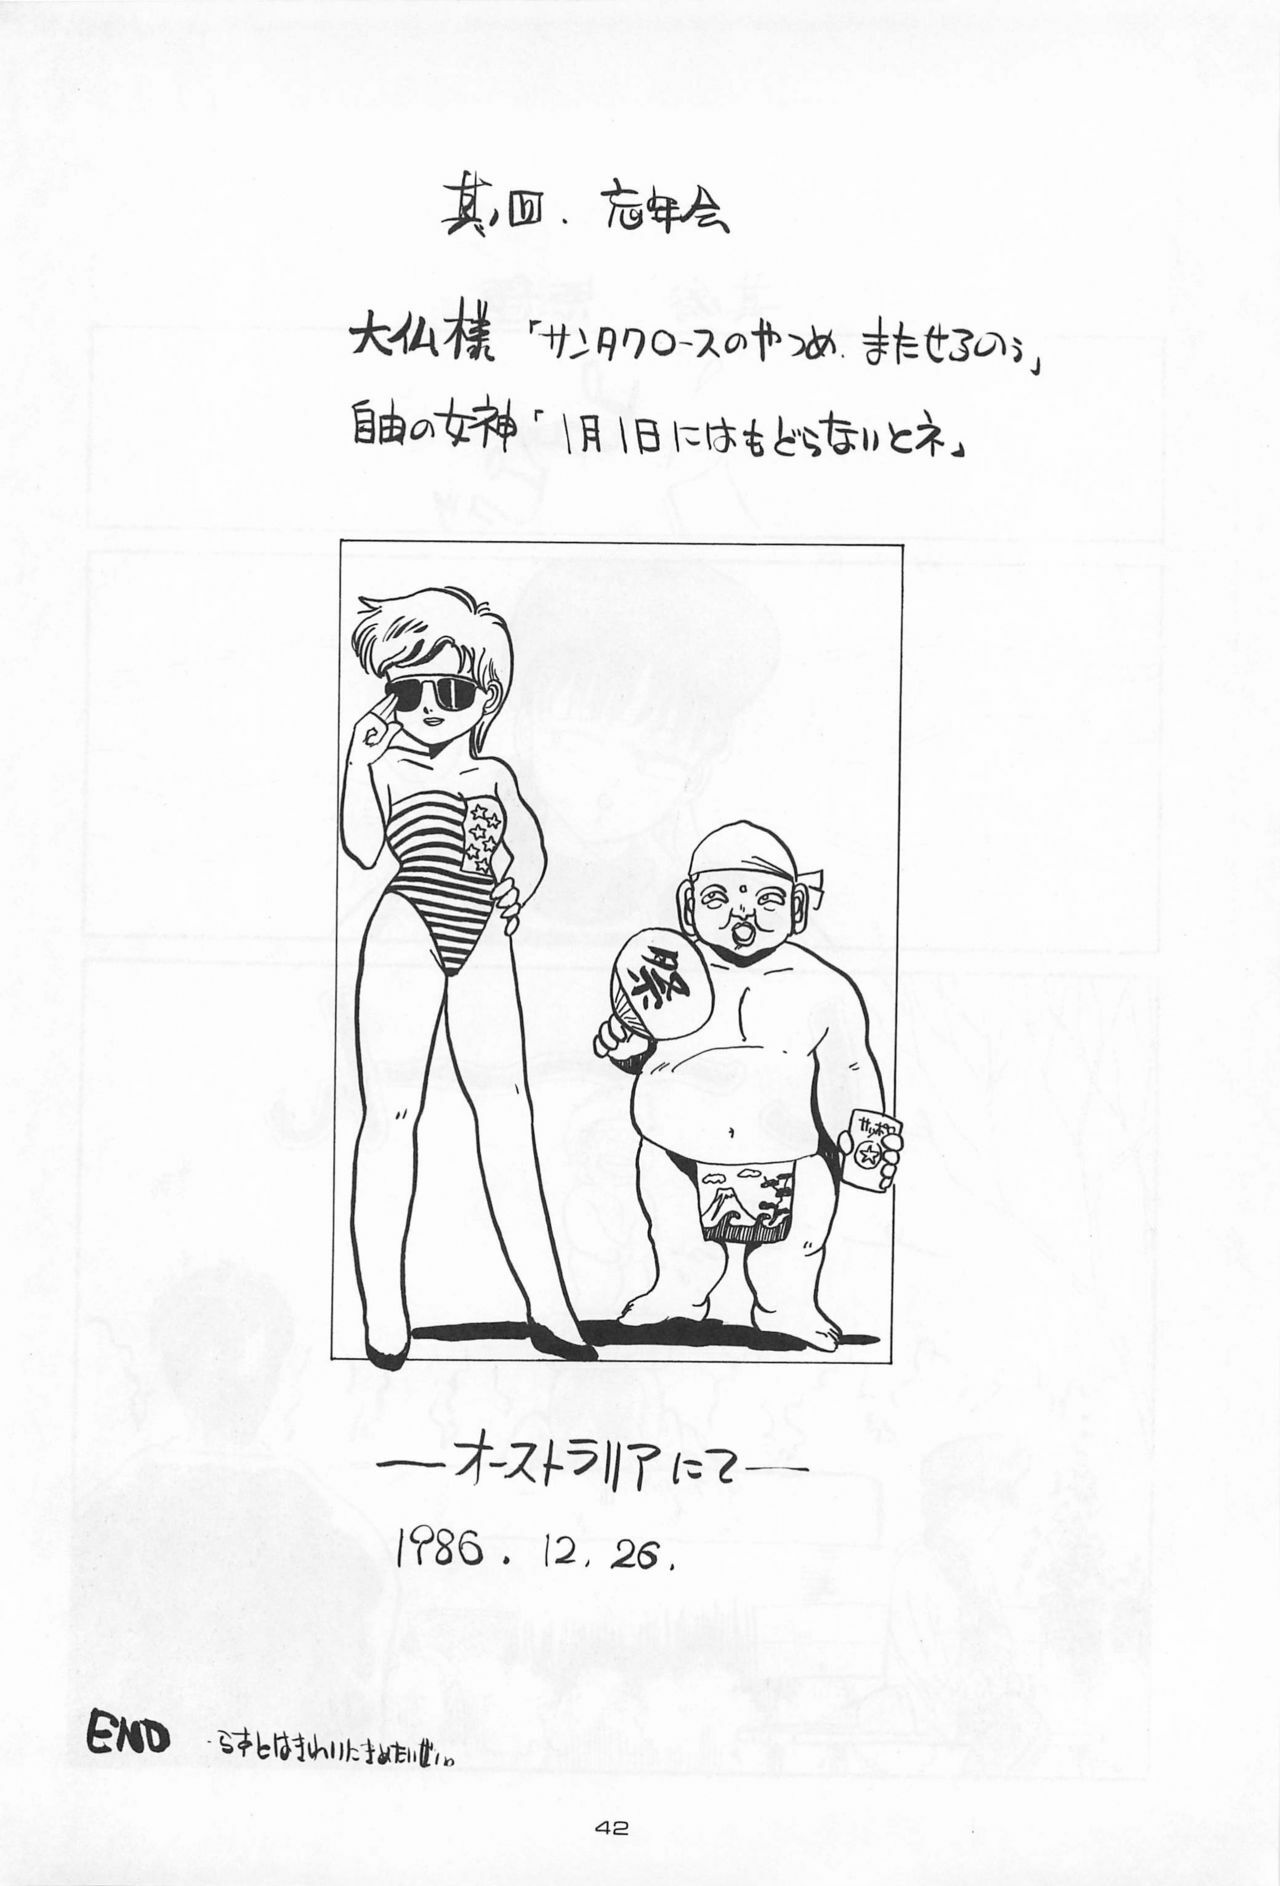 其ノ四. 忘年会
大仏様「サンタクロースのやつめ、またせるのぅ」
自由の女神「1月1日にはもどらないとネ」
祭
サッポロ
—オーストラリアにて—
1986. 12. 26.
END らすとはきれいにきめたいぜい。
42